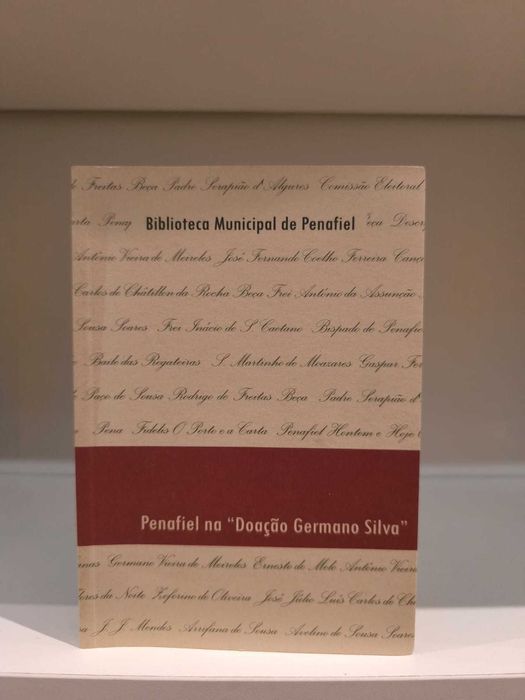 Freitas Beça Padre Serapião d'Algures Comissão Eleitoral
Biblioteca Municipal de Penafiel
António Vieira de Meireles José Fernando Coelho Ferreira
Carlos de Châtillon da Rocha Beça Frei António da Assunção
Sousa Soares Frei Inácio de S. Caetano Bispado de
Baile das Regateiras S. Martinho de Moazares Gaspar
Paço de Sousa Rodrigo de Freitas Beça Padre Serapião d'
Pena Fidelis O Porto e a Carta Penafiel Hontem e Hoje
Penafiel na "Doação Germano Silva"
Germano Vieira de Meireles Ernesto de Melo António
da Noite Zeferino de Oliveira José Júlio Luís Carlos de
J. J. Mendes Arrifana de Sousa Avelino de Sousa Soares